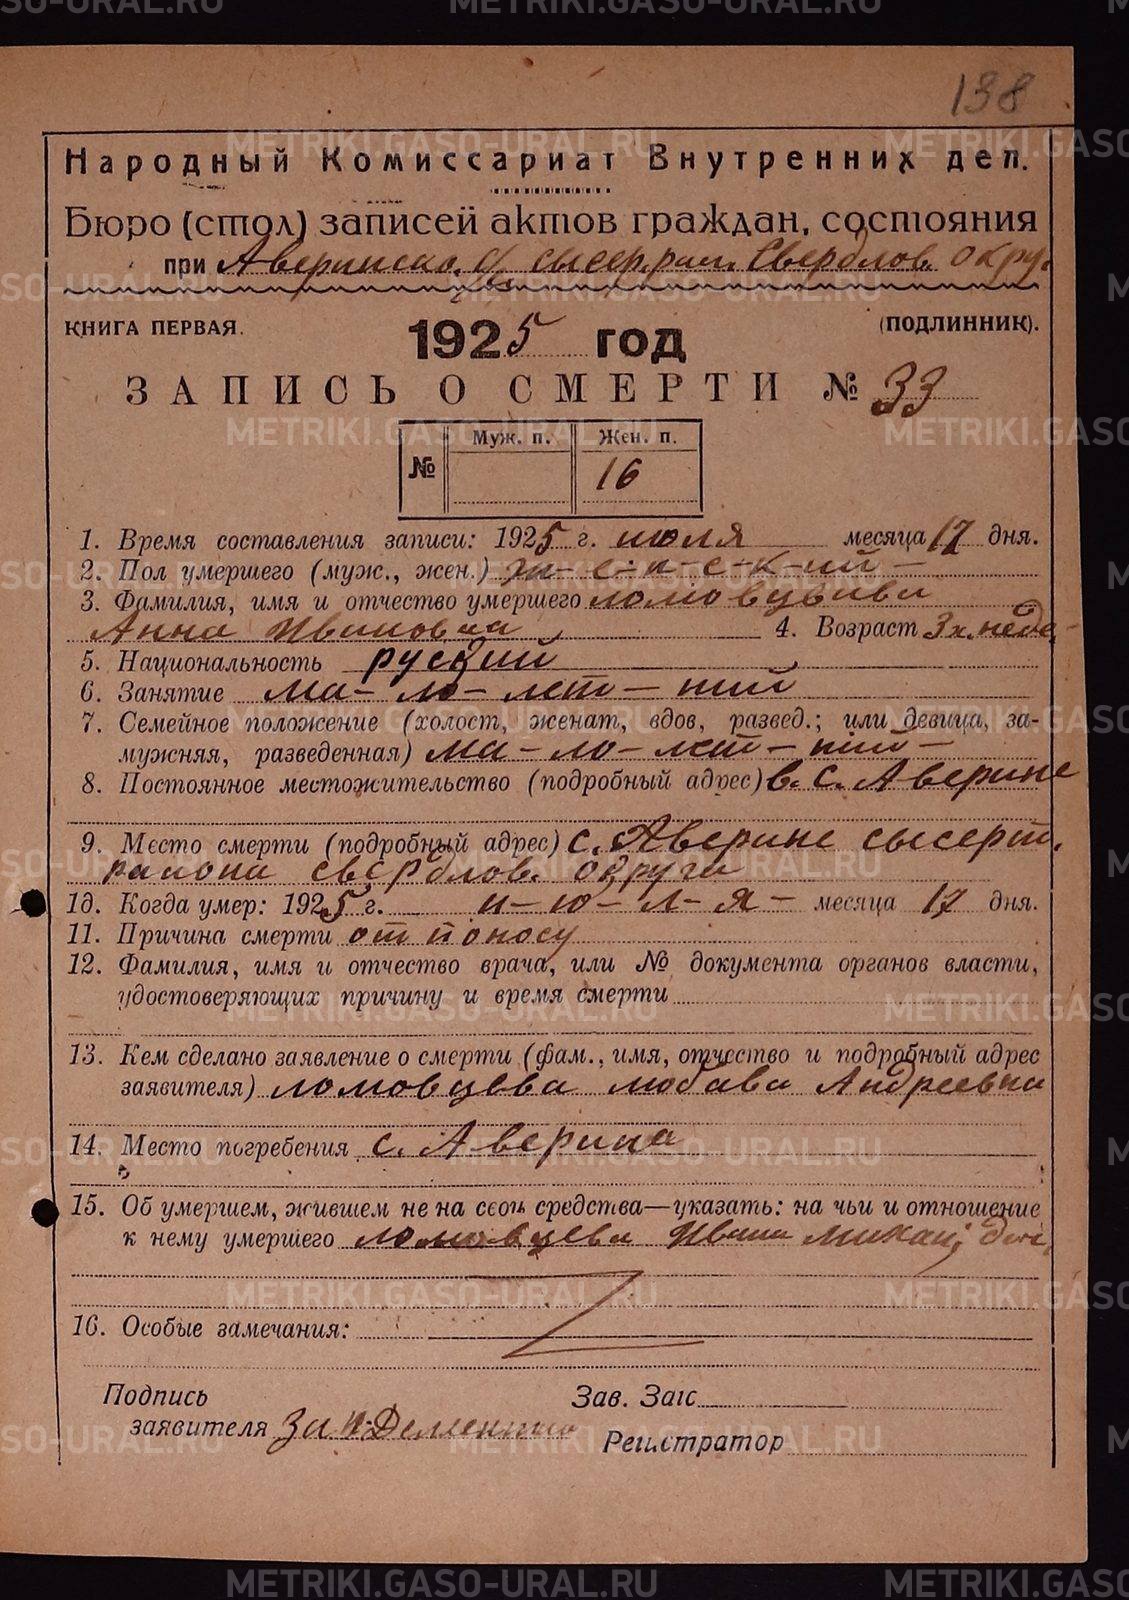 138
Народный Комиссариат Внутренних дел.
Бюро (стол) записей актов граждан. состояния
при Аверинско. с/с сысер. рай. Свердлов. окру.
КНИГА ПЕРВАЯ.
1925 год
(ПОДЛИННИК).
ЗАПИСЬ О СМЕРТИ № 33
№ Муж. п. Жен. п.
16
1. Время составления записи: 1925 г. июля месяца 17 дня.
2. Пол умершего (муж., жен.) ж-е-н-с-к-ий-
3. Фамилия, имя и отчество умершего ломовцева
Анна Ивановна 4. Возраст 3х. неде-
5. Национальность русский
6. Занятие ма-ло-лет-ний
7. Семейное положение (холост, женат, вдов, развед.; или девица, за-
мужняя, разведенная) ма-ло-лет-ний-
8. Постоянное местожительство (подробный адрес) в. с. Аверине
9. Место смерти (подробный адрес) с. Аверине сысерт.
района свердлов. округа
10. Когда умер: 1925 г. и-ю-л-я- месяца 17 дня.
11. Причина смерти от поносу
12. Фамилия, имя и отчество врача, или № документа органов власти,
удостоверяющих причину и время смерти
13. Кем сделано заявление о смерти (фам., имя, отчество и подробный адрес
заявителя) ломовцева любава Андреевна
14. Место погребения с. Аверина
15. Об умершем, жившем не на свои средства—указать: на чьи и отношение
к нему умершего ломовцева Ивана Михай;
16. Особые замечания:
Подпись
заявителя
Зав. Загс
Регистратор
METRIKI.GASO-URAL.RU